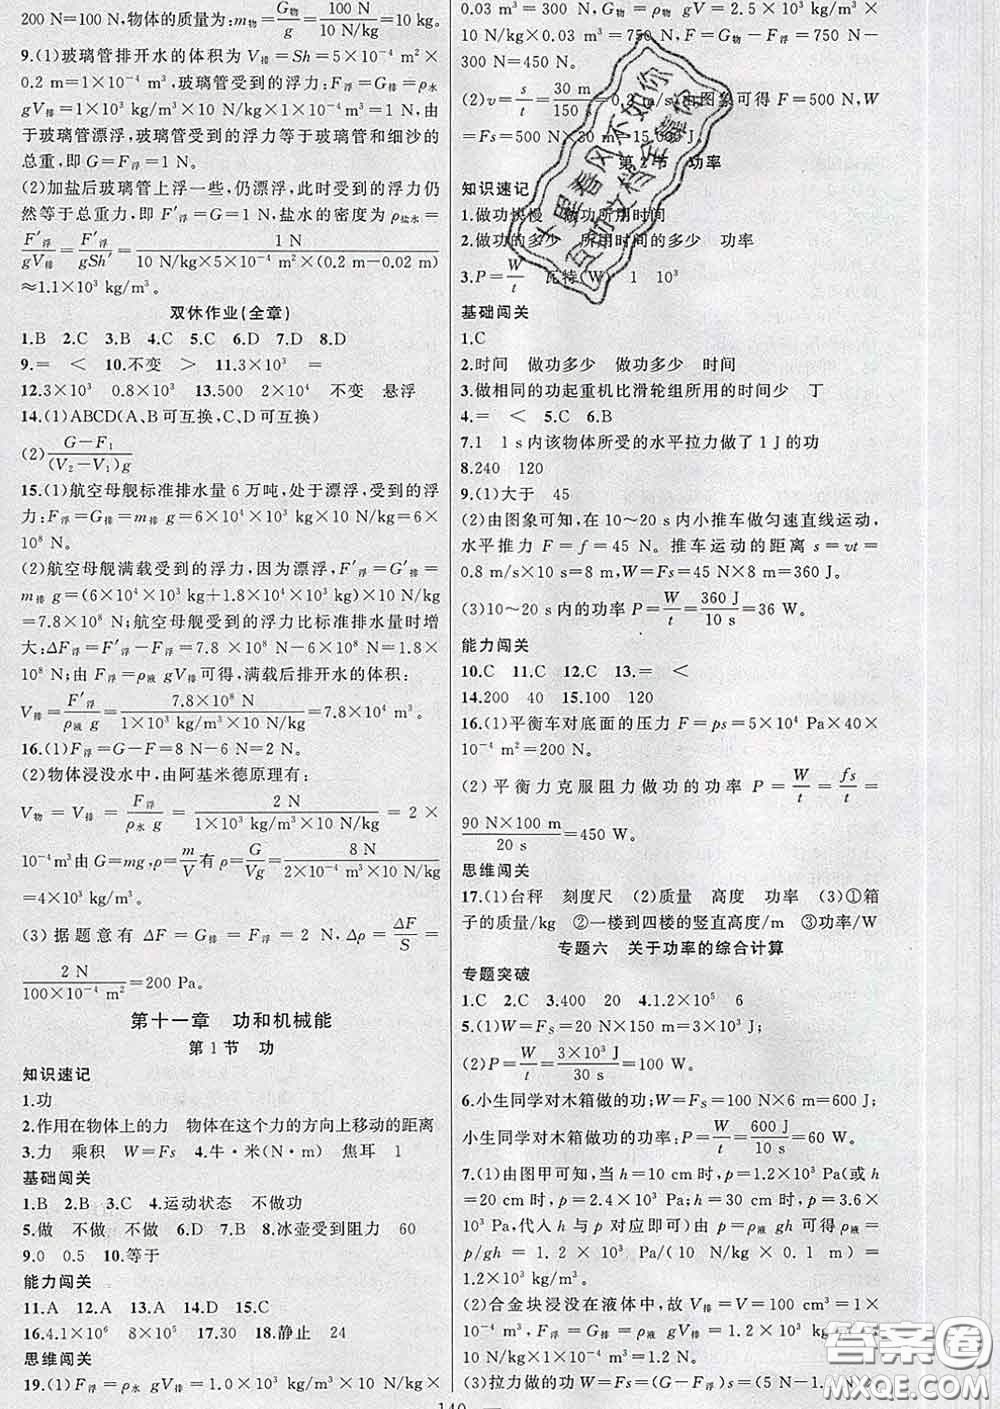 200 N=100 N,物体的质量为:m物=G物/g=100 N/10 N/kg=10 kg。
9.(1)玻璃管排开水的体积为 V排=Sh=5×10⁻⁴ m²×
0.2 m=1×10⁻⁴ m³,玻璃管受到的浮力:F浮=G排=ρ水
gV排=1×10³ kg/m³×10 N/kg×1×10⁻⁴ m³=1 N,由
于玻璃管漂浮,玻璃管受到的浮力等于玻璃管和细沙的
总重,即 G=F浮=1 N。
(2)加盐后玻璃管上浮一些,仍漂浮,此时受到的浮力仍
然等于总重力,即 F′浮=G=1 N,盐水的密度为 ρ盐水=
F′浮/gV排=F′浮/gSh′=1 N/10 N/kg×5×10⁻⁴ m²×(0.2 m-0.02 m)
≈1.1×10³ kg/m³。
双休作业(全章)
1.B 2.C 3.B 4.C 5.C 6.D 7.D 8.D
9.= < 10.不变 > 11.3×10³ =
12.3×10³ 0.8×10³ 13.500 2×10⁴ 不变 悬浮
14.(1)ABCD(A、B可互换,C、D可互换)
(2)G-F₁/(V₂-V₁)g
15.(1)航空母舰标准排水量 6 万吨,处于漂浮,受到的浮
力:F浮=G排=m排 g=6×10⁴×10³ kg×10 N/kg=6×
10⁸ N。
(2)航空母舰满载受到的浮力,因为漂浮,F′浮=G′排=
m排 g=(6×10⁴×10³ kg+1.8×10⁴×10³ kg)×10 N/kg
=7.8×10⁸ N;航空母舰受到的浮力比标准排水量时增
大:ΔF浮=F′浮-F浮=7.8×10⁸ N-6×10⁸ N=1.8×
10⁸ N;由 F浮=ρ液 gV排可得,满载后排开水的体积:
V排=F′浮/ρ液 g=7.8×10⁸ N/1×10³ kg/m³×10 N/kg=7.8×10⁴ m³。
16.(1)F浮=G-F=8 N-6 N=2 N。
(2)物体浸没水中,由阿基米德原理有:
V物=V排=F浮/ρ水 g=2 N/1×10³ kg/m³×10 N/kg=2×
10⁻⁴m³由 G=mg,ρ=m/V有 ρ=G/Vg=8 N/2×10⁻⁴ m³×10 N/kg
=4×10³ kg/m³。
(3)据题意有 ΔF=G排=F浮=2 N,Δρ=ΔF/S=
2 N/100×10⁻⁴ m²=200 Pa。
第十一章 功和机械能
第1节 功
知识速记
1.功
2.作用在物体上的力 物体在这个力的方向上移动的距离
3.力 乘积 W=Fs 4.牛·米(N·m) 焦耳 1
基础闯关
1.B 2.B 3.C 4.运动状态 不做功
5.做 不做 不做 6.B 7.B 8.冰壶受到阻力 60
9.0 0.5 10.等于
能力闯关
11.A 12.A 13.A 14.D 15.C
16.4.1×10⁶ 8×10⁵ 17.30 18.静止 24
思维闯关
19.(1)F浮=ρ水 gV排=1.0×10³ kg/m³×10 N/kg×
0.03 m³=300 N,G物=ρ物 gV=2.5×10³ kg/m³×
10 N/kg×0.03 m³=750 N,F=G物-F浮=750 N-
300 N=450 N。
(2)v=s/t=30 m/150=0.2 m/s,由图象可得 F=500 N,W
=Fs=500 N×30 m=15 000 J。
第2节 功率
知识速记
1.做功快慢 做功所用时间
2.做功的多少 所用时间的多少 功率
3.P=W/t 瓦特(W) 1 10³
基础闯关
1.C
2.时间 做功多少 做功多少 时间
3.做相同的功起重机比滑轮组所用的时间少 丁
4.= < 5.C 6.B
7.1 1 s内该物体所受的水平拉力做了1 J的功
8.240 120
9.(1)大于 45
(2)由图象可知,在 10~20 s内小推车做匀速直线运动,
水平推力 F=f=45 N。推车运动的距离 s=vt=
0.8 m/s×10 s=8 m,W=Fs=45 N×8 m=360 J。
(3)10~20 s内的功率 P=W/t=360 J/10 s=36 W。
能力闯关
10.C 11.C 12.C 13.= <
14.200 40 15.100 120
16.(1)平衡车对底面的压力 F=ps=5×10⁴ Pa×40×
10⁻⁴ m²=200 N。
(2)平衡力克服阻力做功的功率 P=W/t=fs/t=
90 N×100 m/20 s=450 W。
思维闯关
17.(1)台秤 刻度尺 (2)质量 高度 功率 (3)①箱
子的质量/kg ②一楼到四楼的竖直高度/m ③功率/W
专题六 关于功率的综合计算
专题突破
1.C 2.C 3.400 20 4.1.2×10⁵ 6
5.(1)W=Fs=20 N×150 m=3×10³ J;
(2)P=W/t=3×10³ J/30 s=100 W。
6.小生同学对木箱做的功:W=Fs=100 N×6 m=600 J,
小生同学对木箱做功的功率:P=W/t=600 J/10 s=60 W。
7.(1)由图甲可知,当 h=10 cm时,p=1.2×10³ Pa(或 h
=20 cm时,p=2.4×10³ Pa;h=30 cm时,p=3.6×
10³ Pa,代入 h 与 p 对应即可)由 p=ρ液 gh 可得 ρ液=
p/gh=1.2×10³ Pa/(10 N/kg×0.1 m)=
1.2×10³ kg/m³。
(2)合金块浸没在液体中,故 V排=V=100 cm³=1×
10⁻⁴ m³,F浮=G排=ρ液 gV排=1.2×10³ kg/m³×
10 N/kg×10⁻⁴ m³=1.2 N。
(3)拉力做的功 W=Fs=(G-F浮)s=(5 N-1.2
140
十里春风不如你
互助文档全靠你
答案圈
MXQE.COM